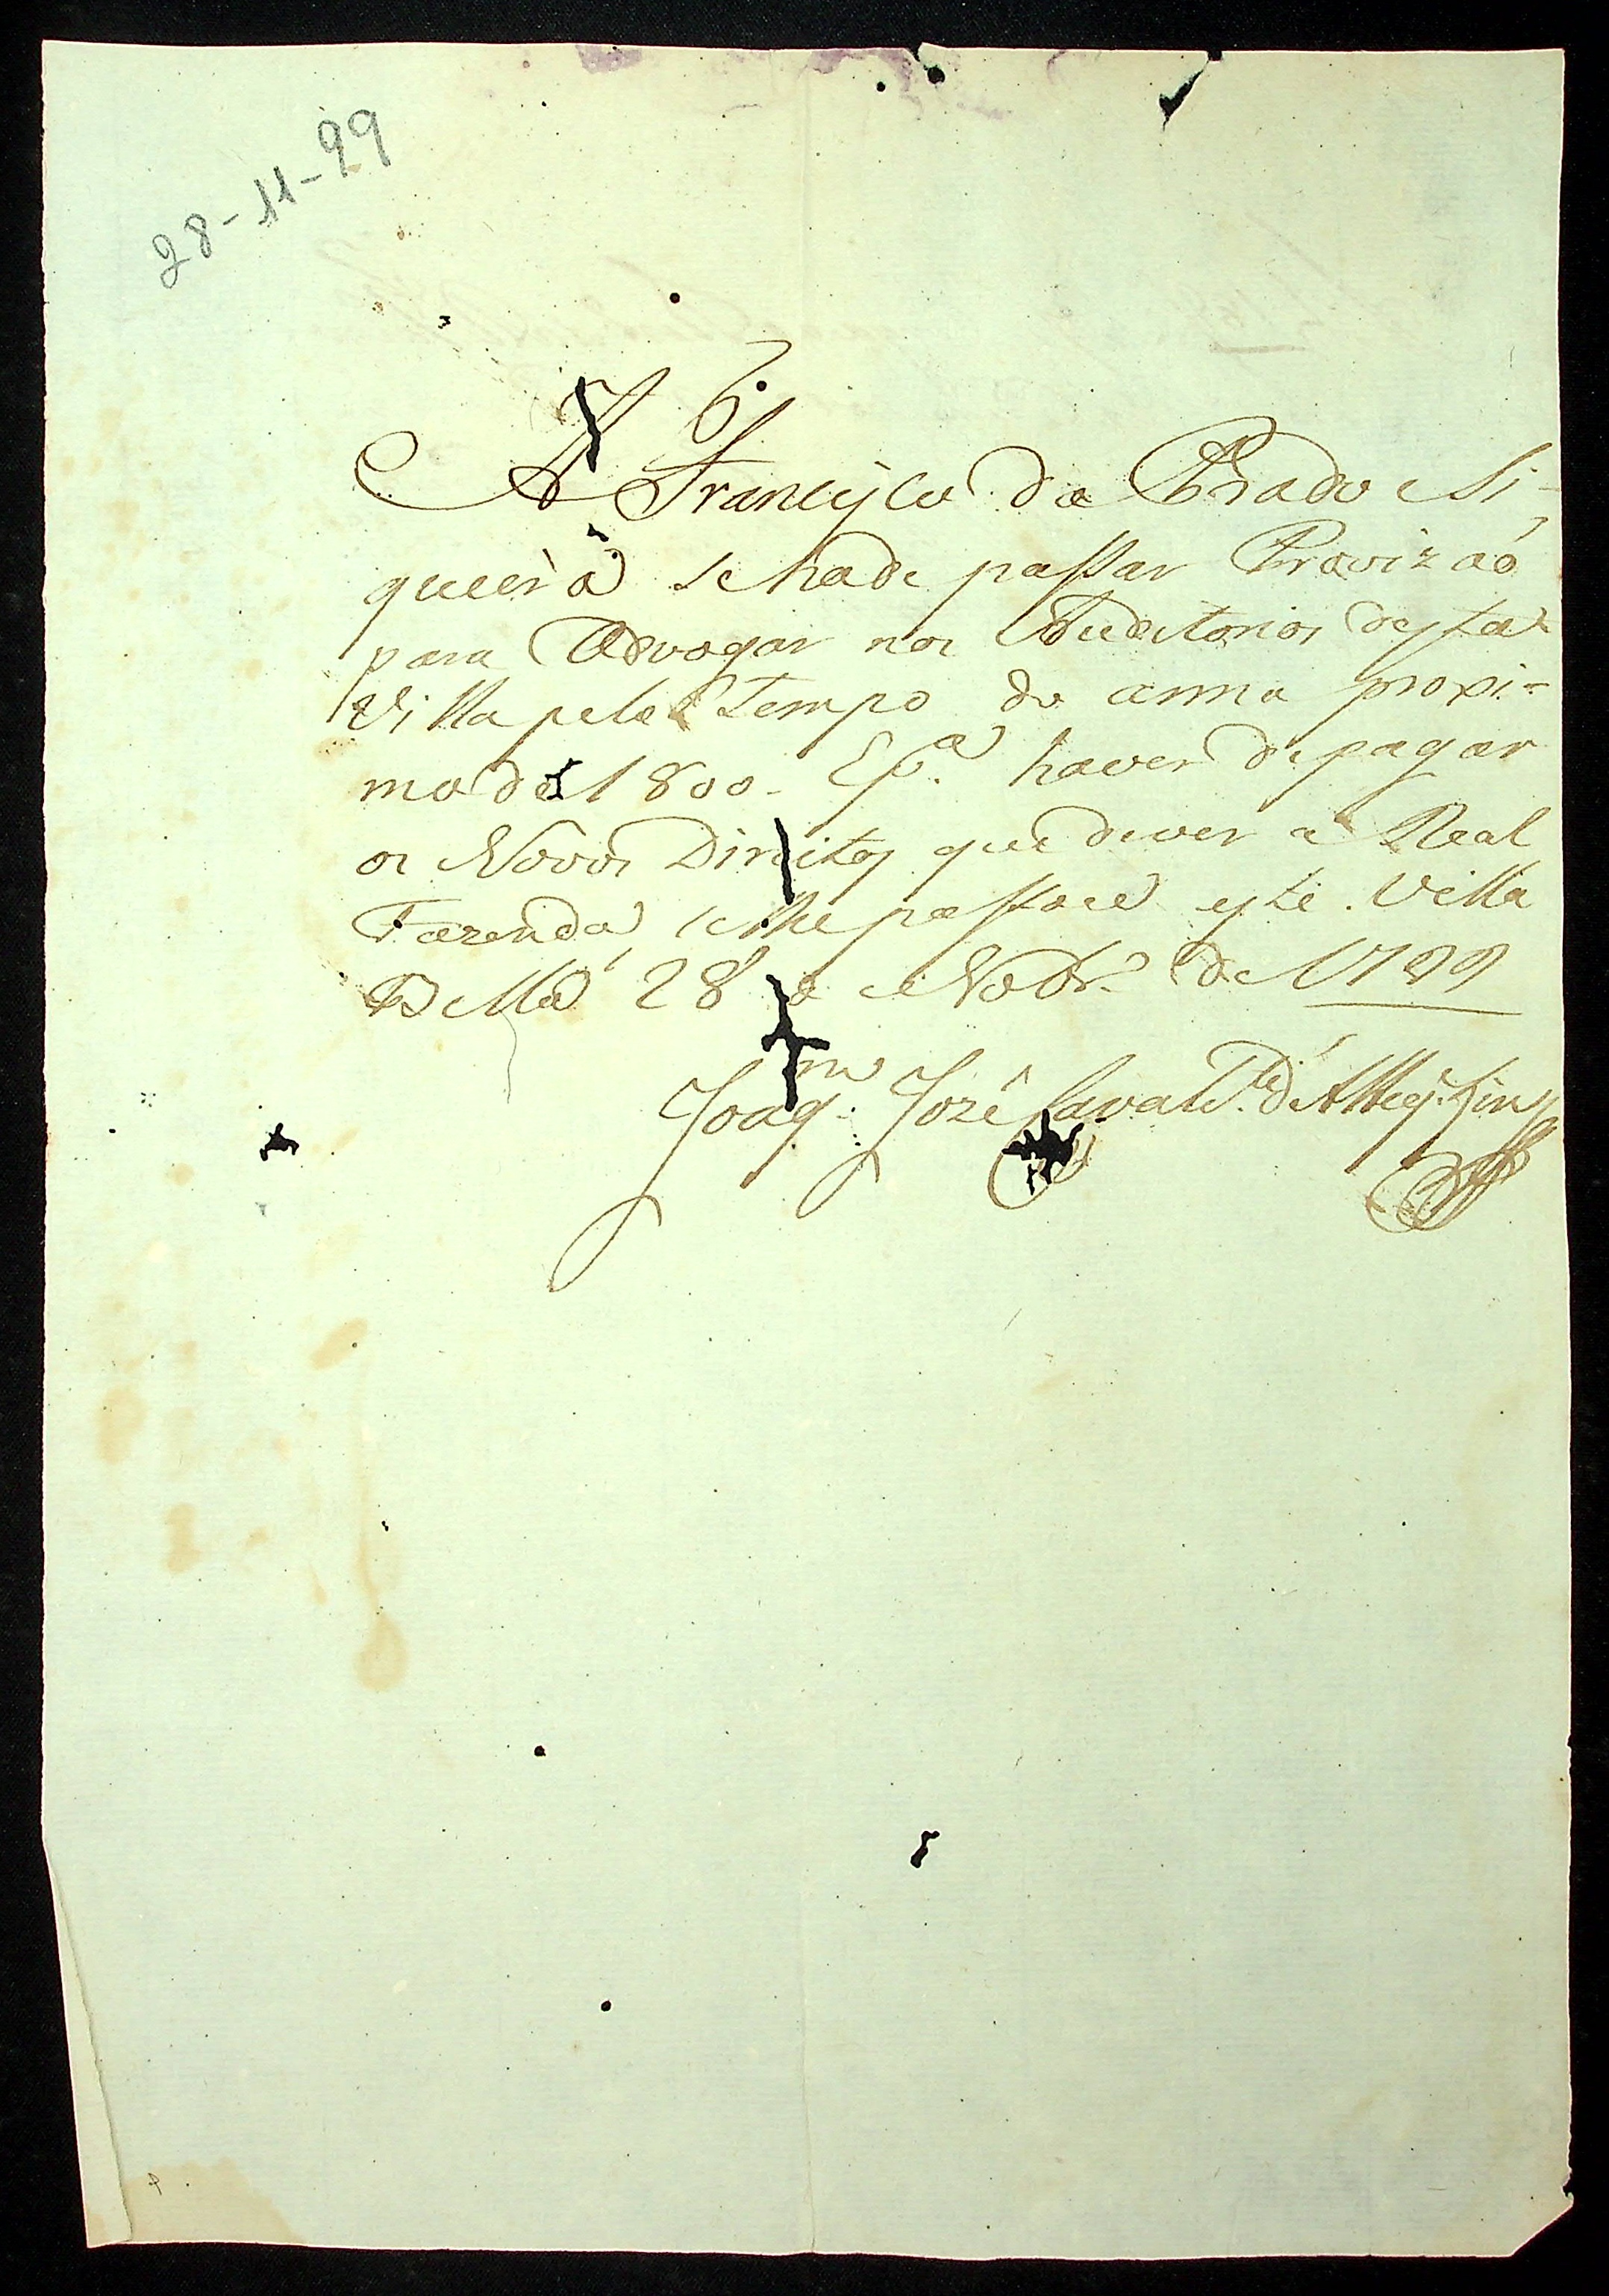 28-11-99
A Francisco do Prado Si-
queira se hade passar Provizaõ
para Advogar nos Auditorios desta
Villa pelo tempo do anno proxi=
mo de 1800. E p.ª haver de pagar
os Novos Direitos que dever a Real
Fazenda se lhe passou este. Villa
Bella 28 de Novbr.º de 1799
Joaq.m José Cavalc.te d'Albuq.